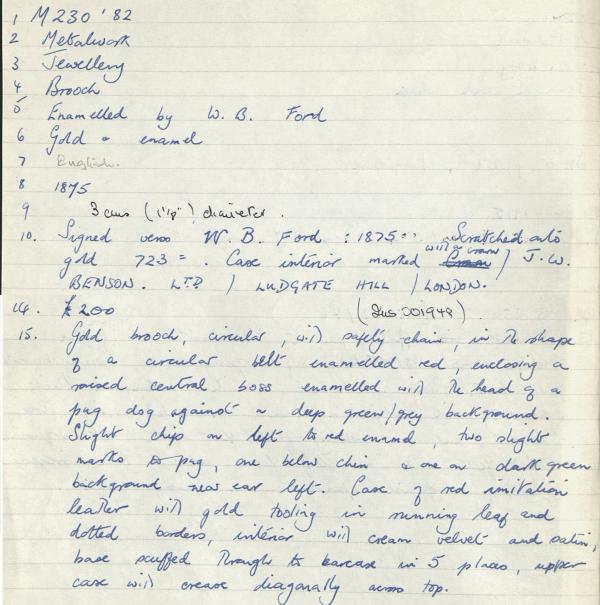 1 M230 '82
2 Metalwork
3 Jewellery
4 Brooch
5 Enamelled by W. B. Ford
6 Gold & enamel
7 English.
8 1875
9 3 cms (1⅛") diameter.
10. Signed verso W. B. Ford : 1875 :- Scratched onto
gold 723 =. Case interior marked with a crown / J.W.
BENSON. LTD / LUDGATE HILL / LONDON.
14. £200 (Ins 001948).
15. Gold brooch, circular, with safety chain, in the shape
of a circular belt enamelled red, enclosing a
raised central boss enamelled with the head of a
pug dog against a deep green/grey background.
Slight chips on left to red enamel, two slight
marks to pug, one below chin & one on dark green
background near ear left. Case of red imitation
leather with gold tooling in running leaf and
dotted borders, interior with cream velvet and satin,
base scuffed through to carcase in 5 places, upper
case with crease diagonally across top.